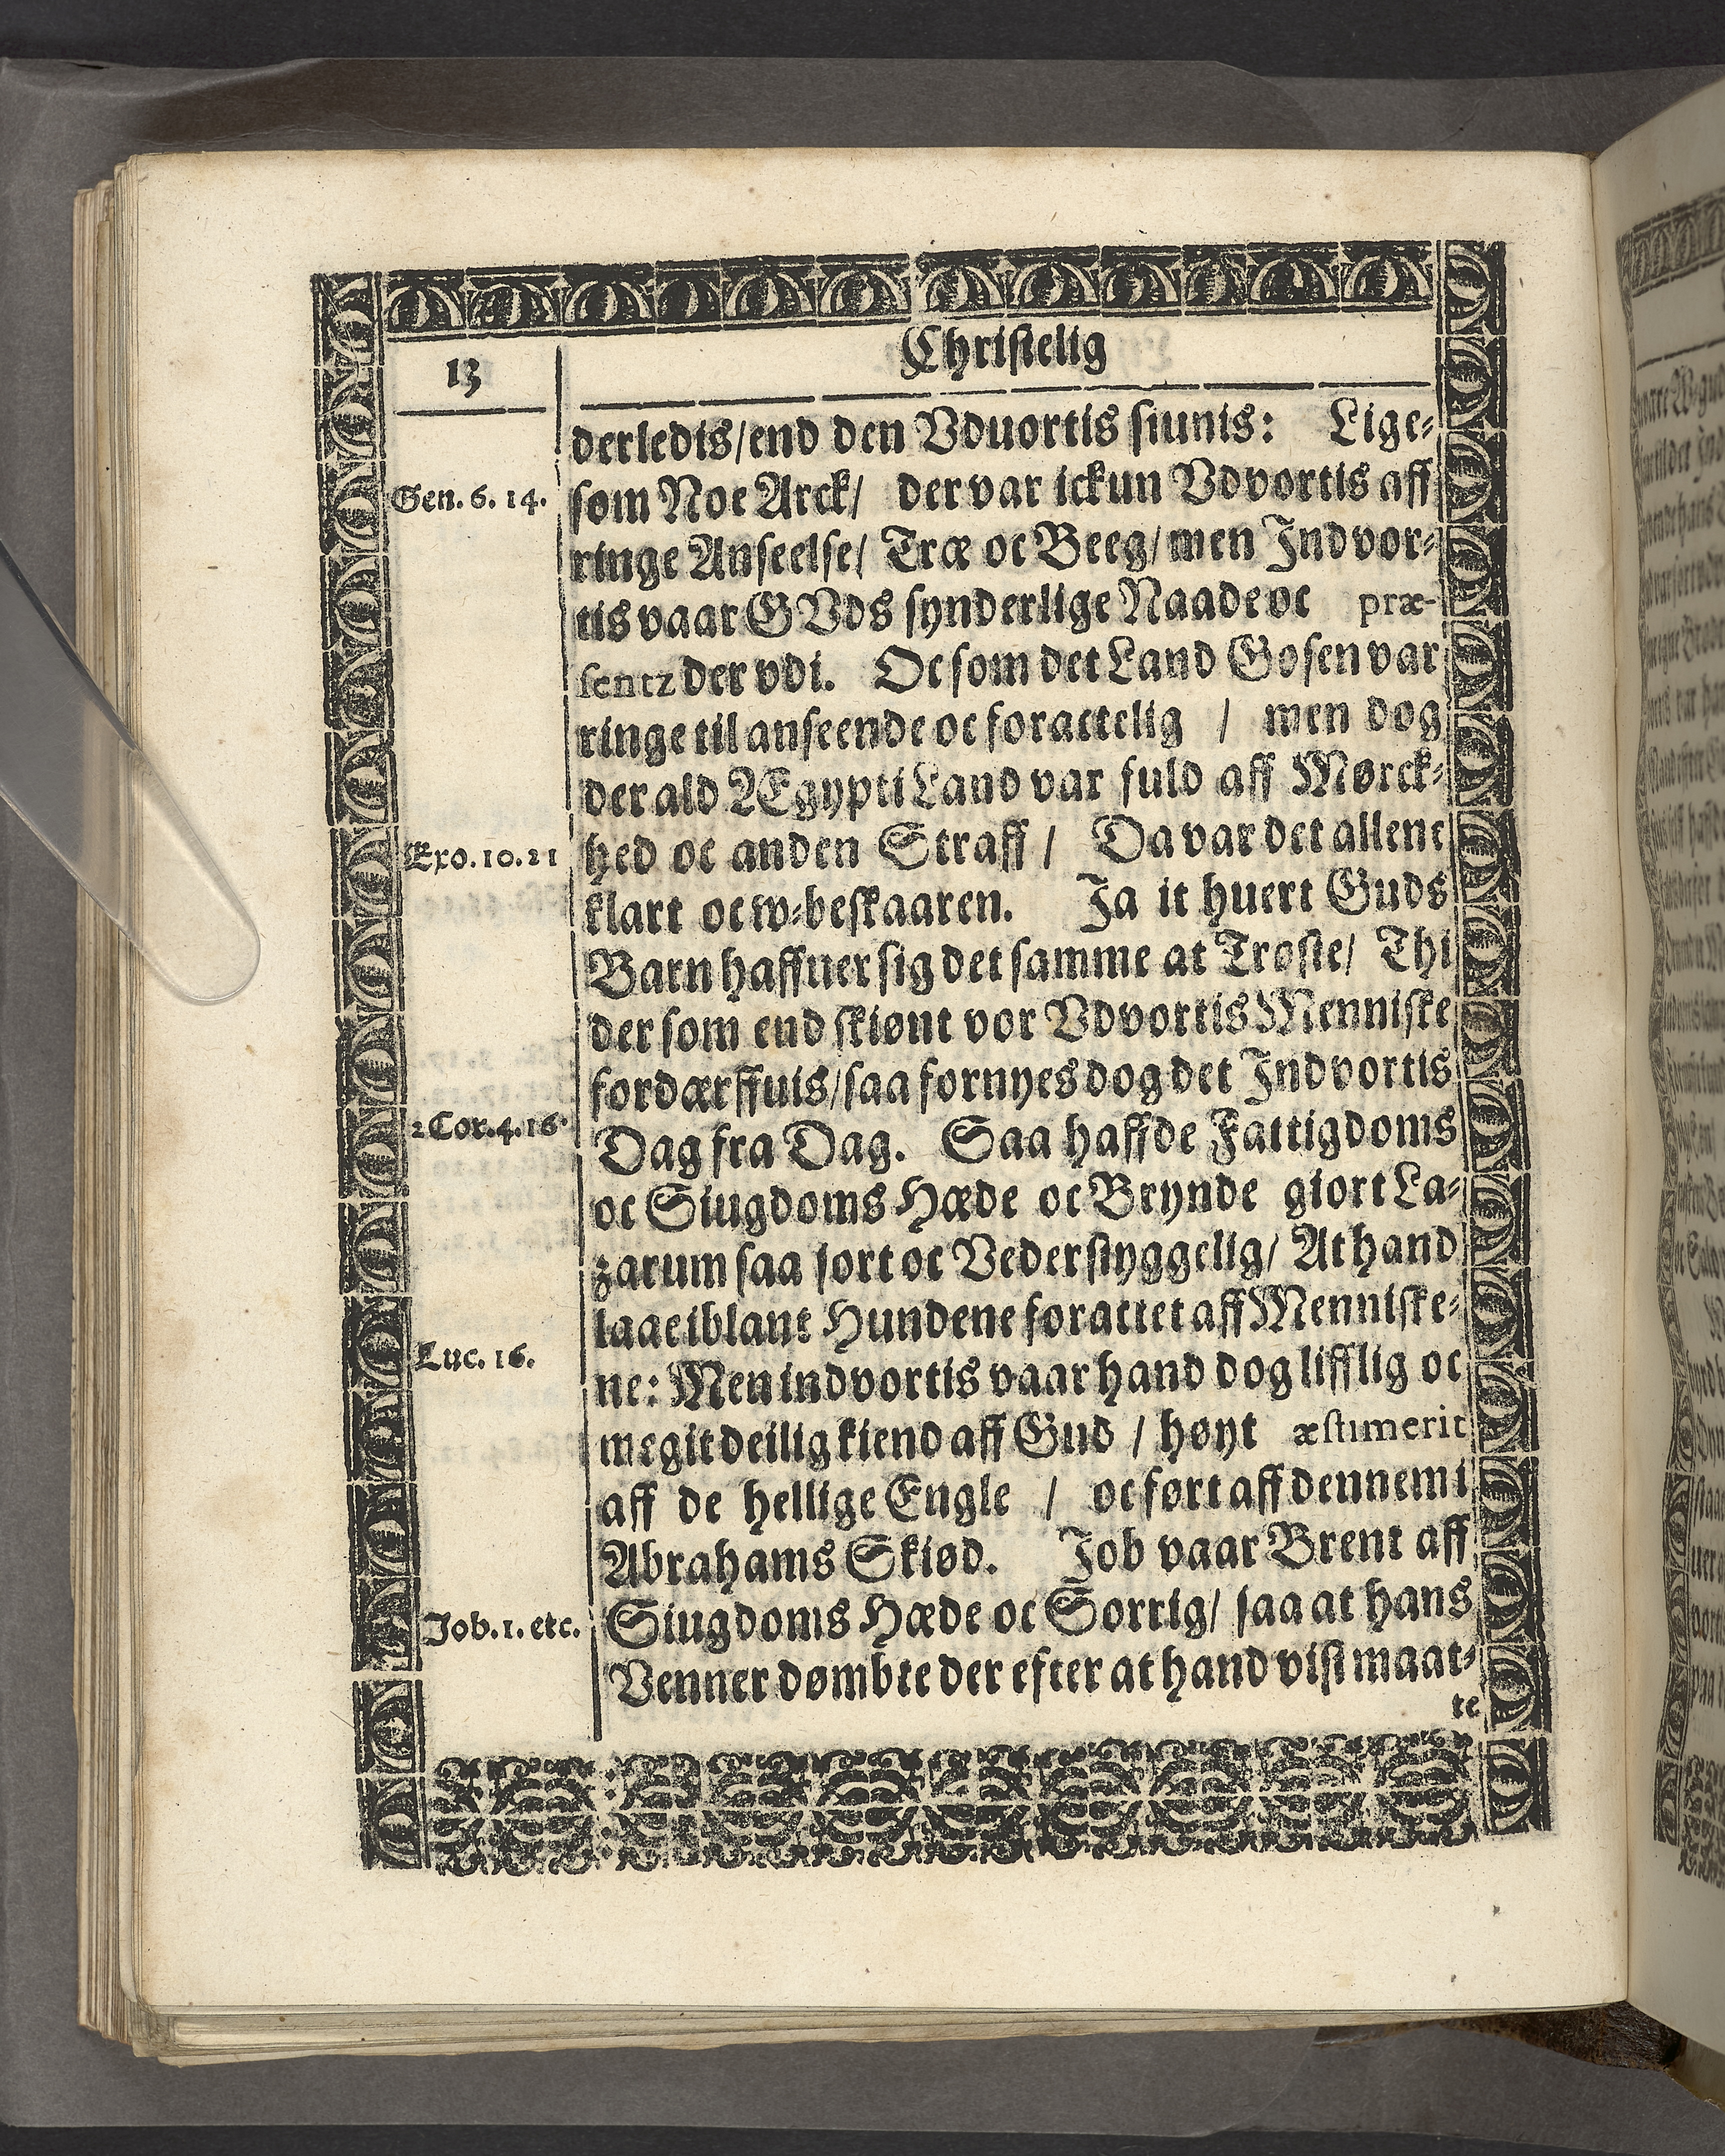 13
Christelig
derledis/end den Vduortis siunis: Lige-
Gen. 6. 14.
som Noe Arck/ der var ickun Vdvortis aff
ringe Anseelse/ Træ oc Beeg/men Indvor-
tis vaar GVds synderlige Naade oc præ-
sentz der vdi. Oc som det Land Gosen var
ringe til anseende oc forattelig / men dog
der ald Ægypti Land var fuld aff Mørck-
Exo. 10. 21
hed oc anden Straff / Da var det allene
klart oc w-beskaaren. Ja it huert Guds
Barn haffuer sig det samme at Trøste/ Thi
der som end skiønt vor Vdvortis Menniske
fordærffuis/saa fornyes dog det Indvortis
2 Cor. 4. 16.
Dag fra Dag. Saa haffde Fattigdoms
oc Siugdoms Hæde oc Brynde giort La-
zarum saa sort oc Vederstyggelig/ At hand
laae iblant Hundene forattet aff Menniske-
Luc. 16.
ne: Men indvortis vaar hand dog lifflig oc
megit deilig kiend aff Gud / høyt æstimerit
aff de hellige Engle / oc ført aff dennem i
Abrahams Skiød. Job vaar Brent aff
Job. 1. etc.
Siugdoms Hæde oc Sorrig/ saa at hans
Venner dømbte der efter at hand vist maat-
te